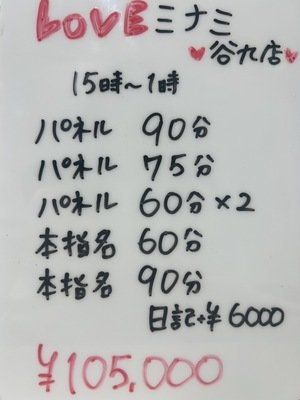 LOVEミナミ
♥谷九店♥
15時~1時
パネル 90分
パネル 75分
パネル 60分×2
本指名 60分
本指名 90分
日記+¥6000
¥105,000